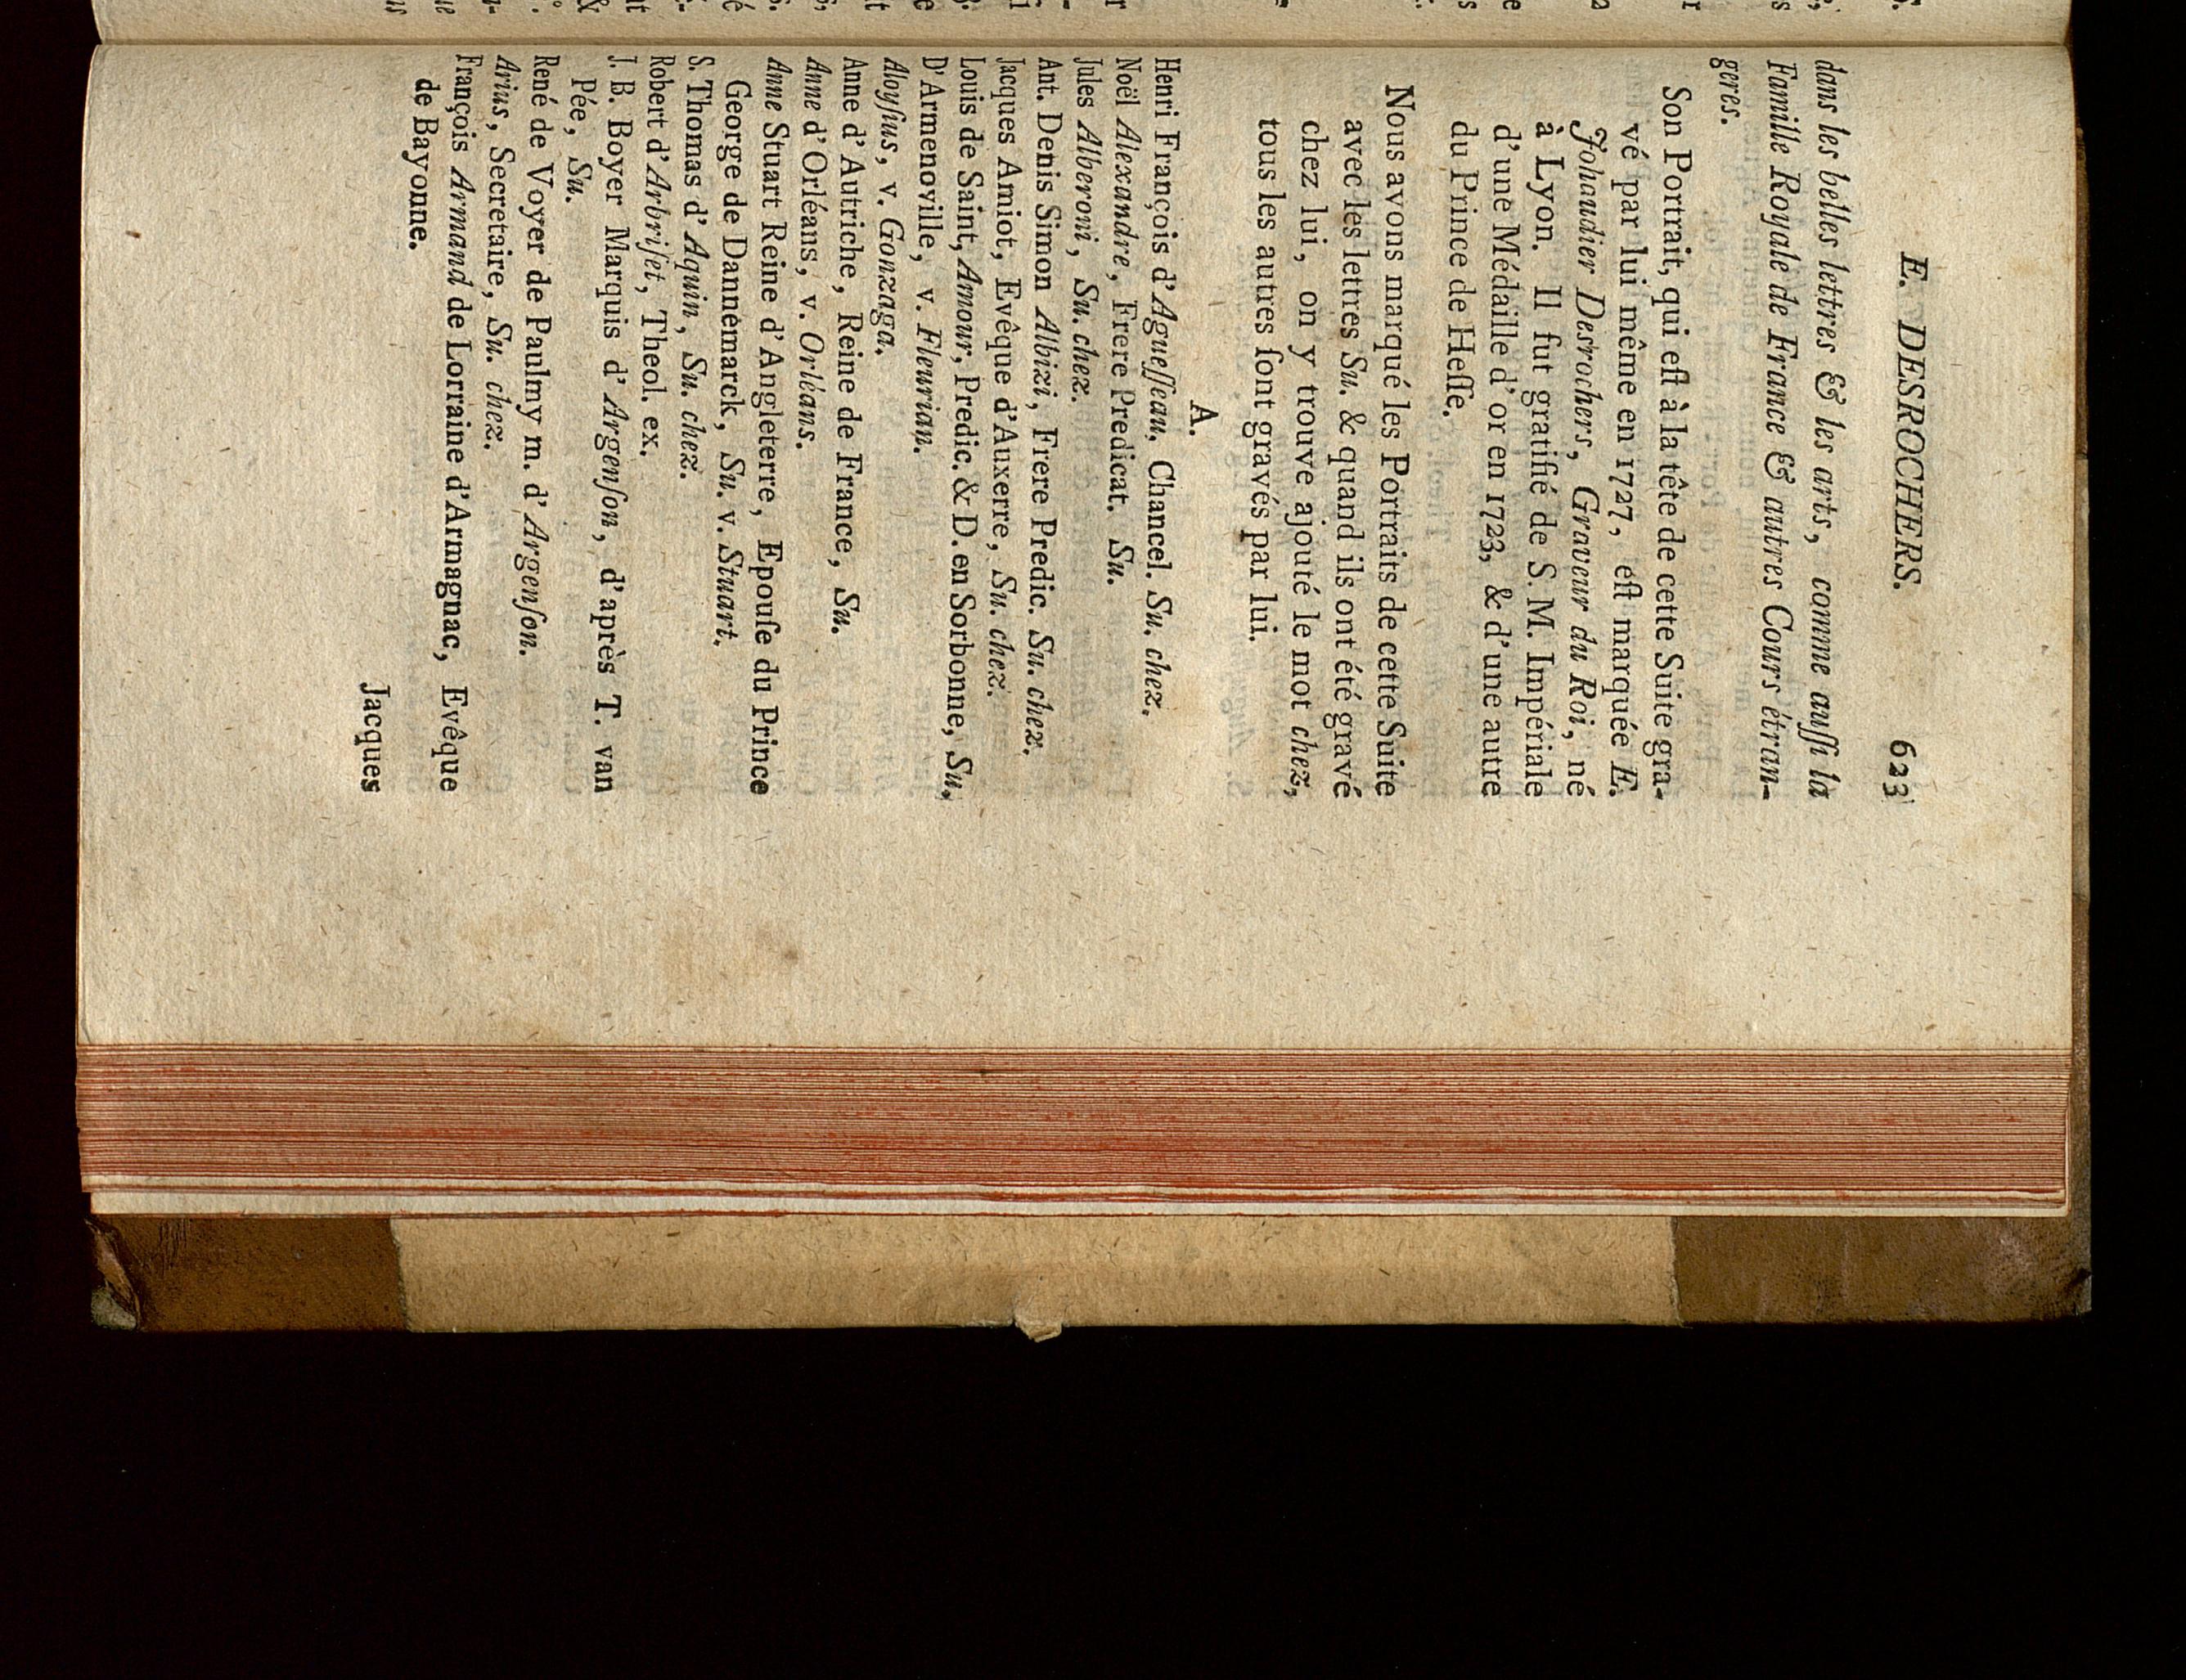 E. DESROCHERS. 623
dans les belles lettres & les arts, comme auſſi la
Famille Royale de France & autres Cours étran-
geres.
Son Portrait, qui eſt à la tête de cette Suite gra-
vé par lui même en 1727, eſt marquée E.
Johaudier Desrochers, Graveur du Roi, né
à Lyon. Il fut gratifié de S. M. Impériale
d'une Médaille d'or en 1723, & d'une autre
du Prince de Heſſe.
Nous avons marqué les Portraits de cette Suite
avec les lettres Su. & quand ils ont été gravé
chez lui, on y trouve ajouté le mot chez,
tous les autres ſont gravés par lui.
A.
Henri François d'Agueſſeau, Chancel. Su. chez.
Noël Alexandre, Frere Predicat. Su.
Jules Alberoni, Su. chez.
Ant. Denis Simon Albizi, Frere Predic. Su. chez.
Jacques Amiot, Evêque d'Auxerre, Su. chez.
Louis de Saint, Amour, Predic. & D. en Sorbonne, Su.
D'Armenoville, v. Fleurian.
Aloyſius, v. Gonzaga.
Anne d'Autriche, Reine de France, Su.
Anne d'Orléans, v. Orléans.
Anne Stuart Reine d'Angleterre, Epouſe du Prince
George de Dannemarck, Su. v. Stuart.
S. Thomas d'Aquin, Su. chez.
Robert d'Arbriſet, Theol. ex.
J. B. Boyer Marquis d'Argenſon, d'après T. van
Pée, Su.
René de Voyer de Paulmy m. d'Argenſon.
Arius, Secretaire, Su. chez.
François Armand de Lorraine d'Armagnac, Evêque
de Bayonne.
Jacques